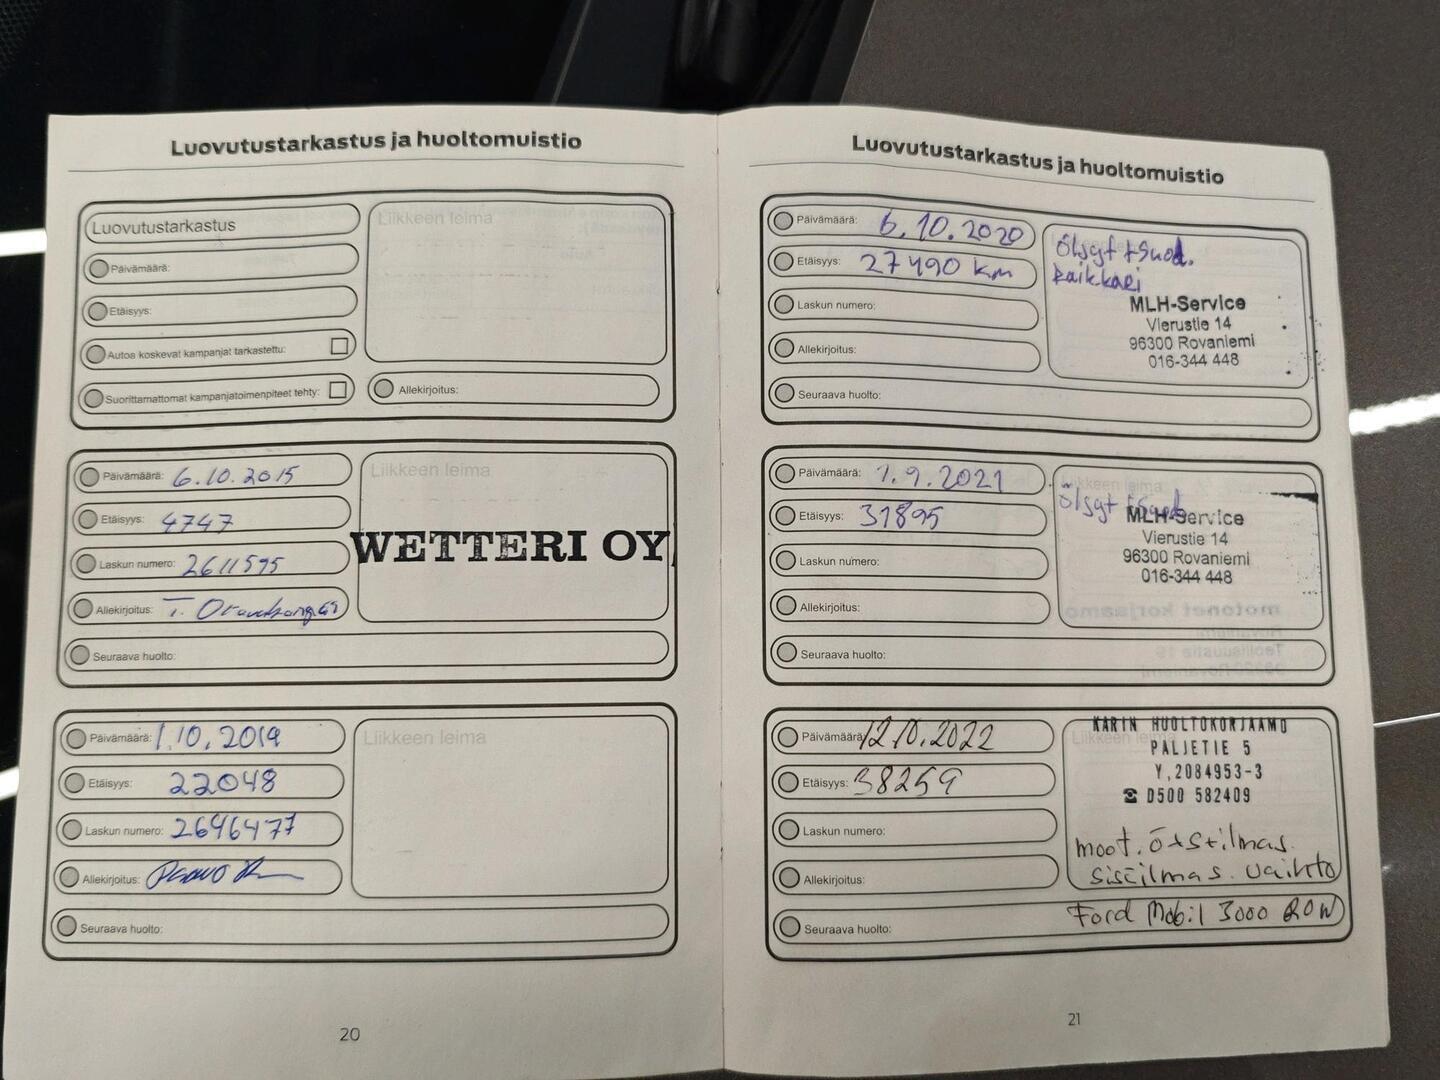 Luovutustarkastus ja huoltomuistio
Luovutustarkastus
Liikkeen leima
Päivämäärä:
Etäisyys:
Autoa koskevat kampanjat tarkastettu:
Suorittamattomat kampanjatoimenpiteet tehty:
Allekirjoitus:
Päivämäärä: 6.10.2015
Liikkeen leima
Etäisyys: 4747
WETTERI OY
Laskun numero: 2611595
Allekirjoitus: T.
Seuraava huolto:
Päivämäärä: 1.10.2019
Liikkeen leima
Etäisyys: 22048
Laskun numero: 2646477
Allekirjoitus:
Seuraava huolto:
20
Luovutustarkastus ja huoltomuistio
Päivämäärä: 6.10.2020
Etäisyys: 27490 km
Laskun numero:
Allekirjoitus:
Seuraava huolto:
Öljyt + Suod.
Raikkari
MLH-Service
Vierustie 14
96300 Rovaniemi
016-344 448
Päivämäärä: 1.9.2021
Etäisyys: 31895
Laskun numero:
Allekirjoitus:
Seuraava huolto:
Liikkeen leima
Öljyt + Suod
MLH-Service
Vierustie 14
96300 Rovaniemi
016-344 448
Päivämäärä: 12.10.2022
Etäisyys: 38259
Laskun numero:
Allekirjoitus:
Seuraava huolto:
Liikkeen leima
KARIN HUOLTOKORJAAMO
PALJETIE 5
Y,2084953-3
☎ 0500 582409
moot. ö+s+ilmas.
sisäilmas. vaihto
Ford Mobil 3000 20W
21